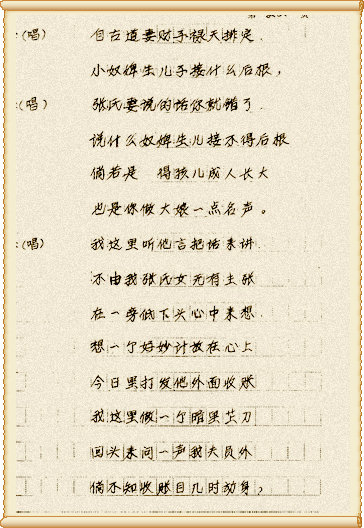 :(唱) 自古道妻财子禄天排定.
小奴婢生儿子接什么后根,
:(唱) 张氏妻说的话你就错了.
说什么奴婢生儿接不得后根
倘若是 得孩儿成人长大
也是你做大娘一点名声。
:(唱) 我这里听他言把话来讲.
不由我张氏女无有主张
在一旁低下头心中来想.
想一个好妙计放在心上
今日里打发他外面收账
我这里做一个暗里生刀
回头来问一声我夫员外
倘不知收账目几时动身,